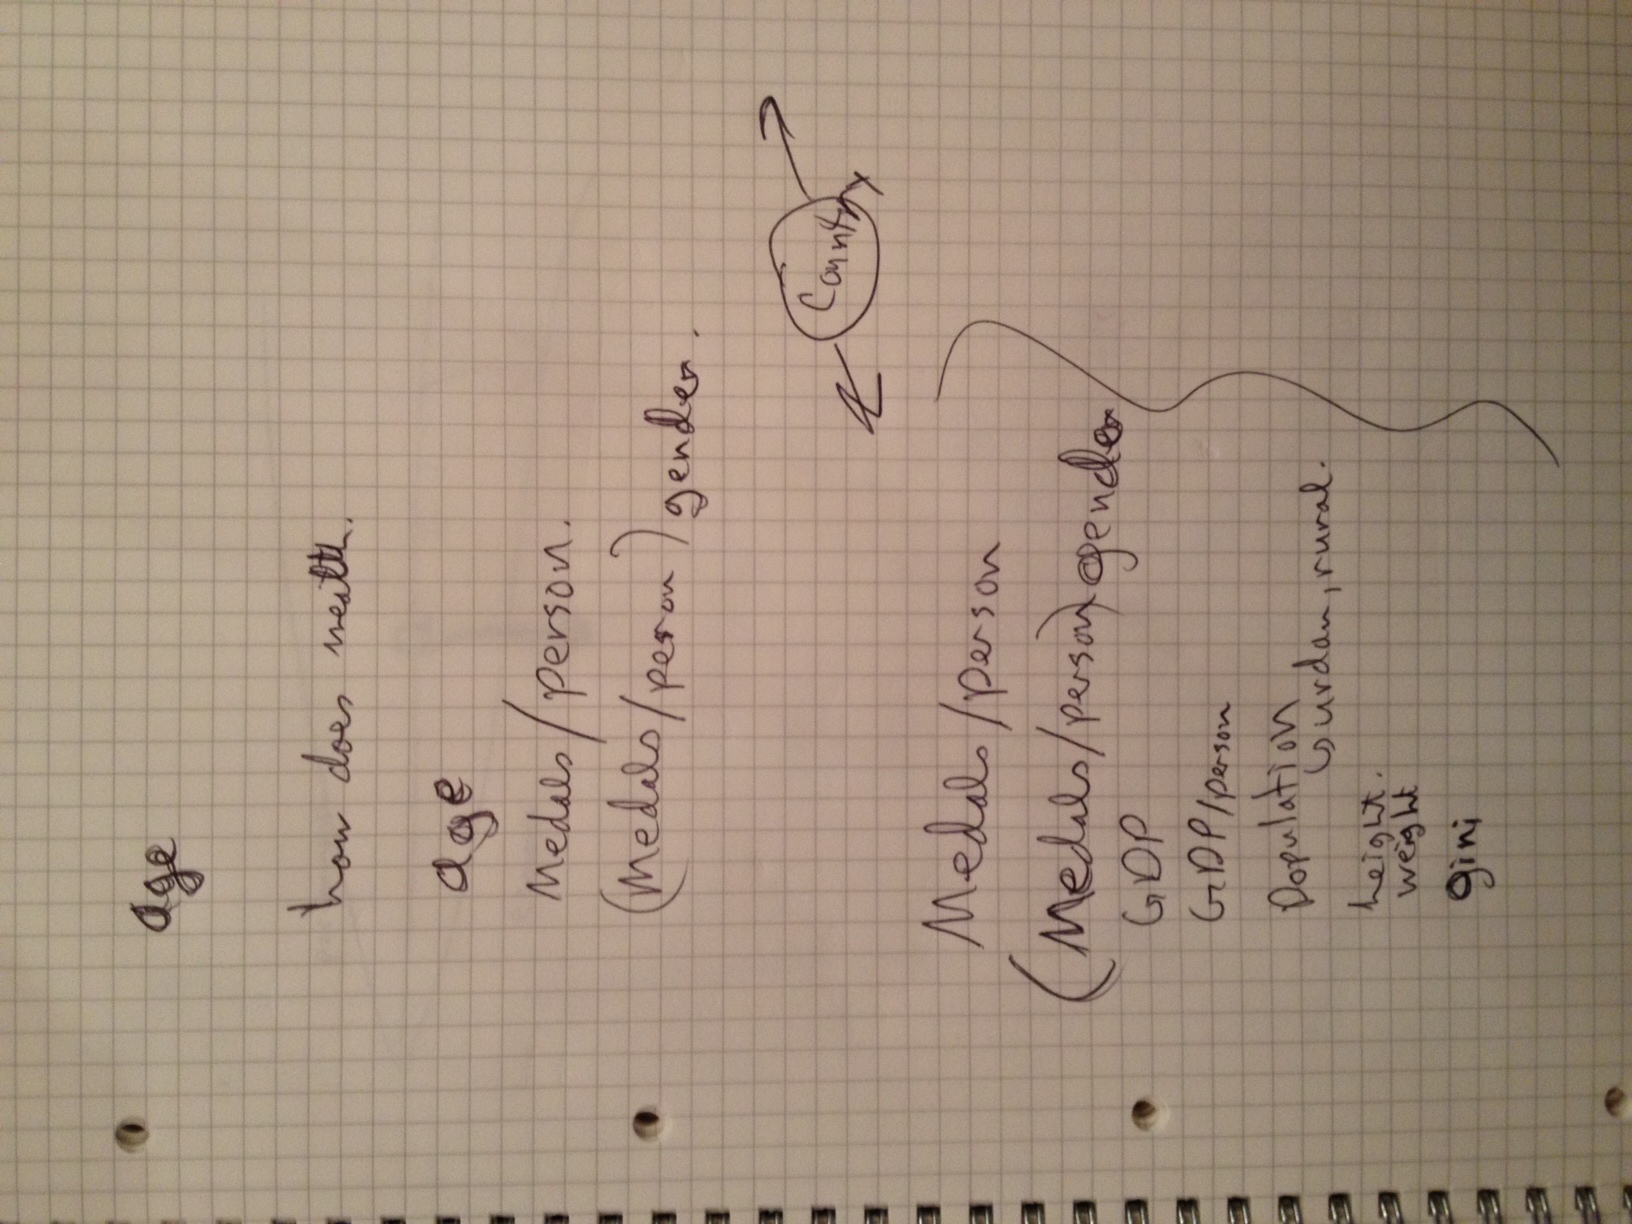 age
how does wealth.
age
Medals/person.
(Medals/person) gender.
Country
Medals/person
(Medals/person) gender
GDP
GDP/person
Population
urdan, rural.
height.
weight
gini